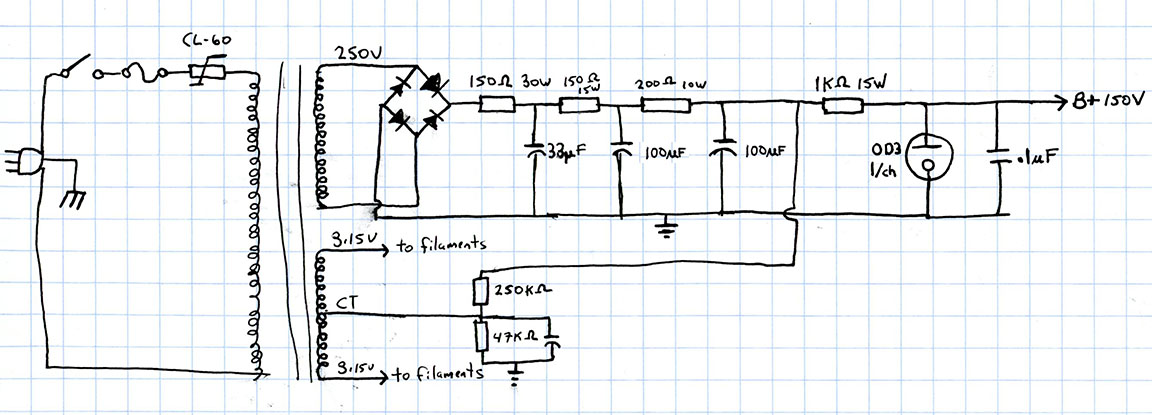 CL-60
250V
150Ω 30W
150Ω
15W
200Ω 10W
1KΩ 15W
B+ 150V
33µF
100µF
100µF
OD3
1/ch
.1µF
3.15V
to filaments
CT
250KΩ
47KΩ
3.15V
to filaments